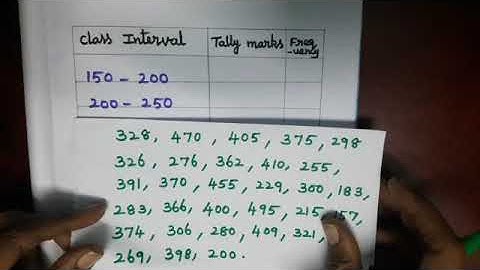 Class Interval Tally marks Freq
-uency
150 - 200
200 - 250
328, 470, 405, 375, 298
326, 276, 362, 410, 255,
391, 370, 455, 229, 300, 183,
283, 366, 400, 495, 215, 157,
374, 306, 280, 409, 321,
269, 398, 200.